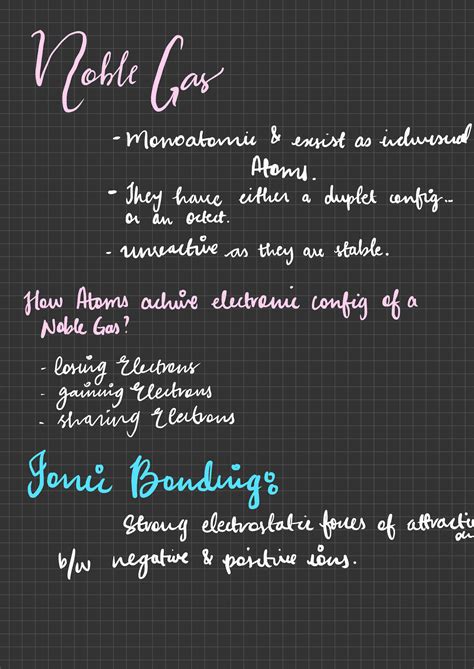 Noble Gas
- Monoatomic & exsist as indivisual
Atoms.
- They have either a duplet config..
or an octect.
- unreactive as they are stable.
How Atoms achive electronic config of a
Noble Gas?
- losing Electrons
- gaining Electrons
- sharing Electrons
Ionic Bonding:
Strong electrostatic forces of attraction
b/w negative & positive ions.